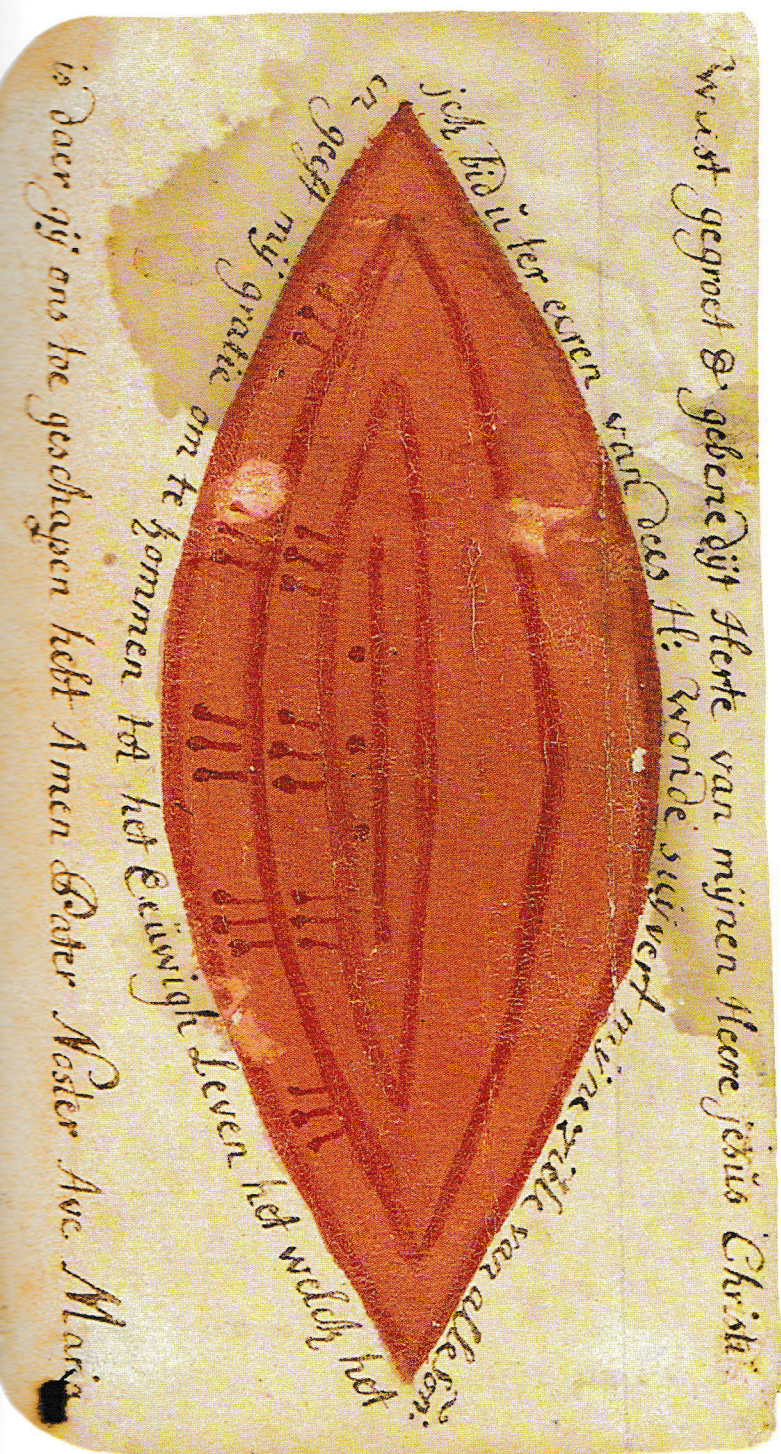 Wist gegroet & gebenedijt Herte van mijnen Heere jesüs Christi
jch bid ü ter eeren van dees H: wonde suijvert mijne ziele van alle son:
en geeft mij gratie om te kommen tot het Eeüwigh Leven het welch het
is daer gij ons toe geschapen hebt Amen Pater Noster Ave Maria